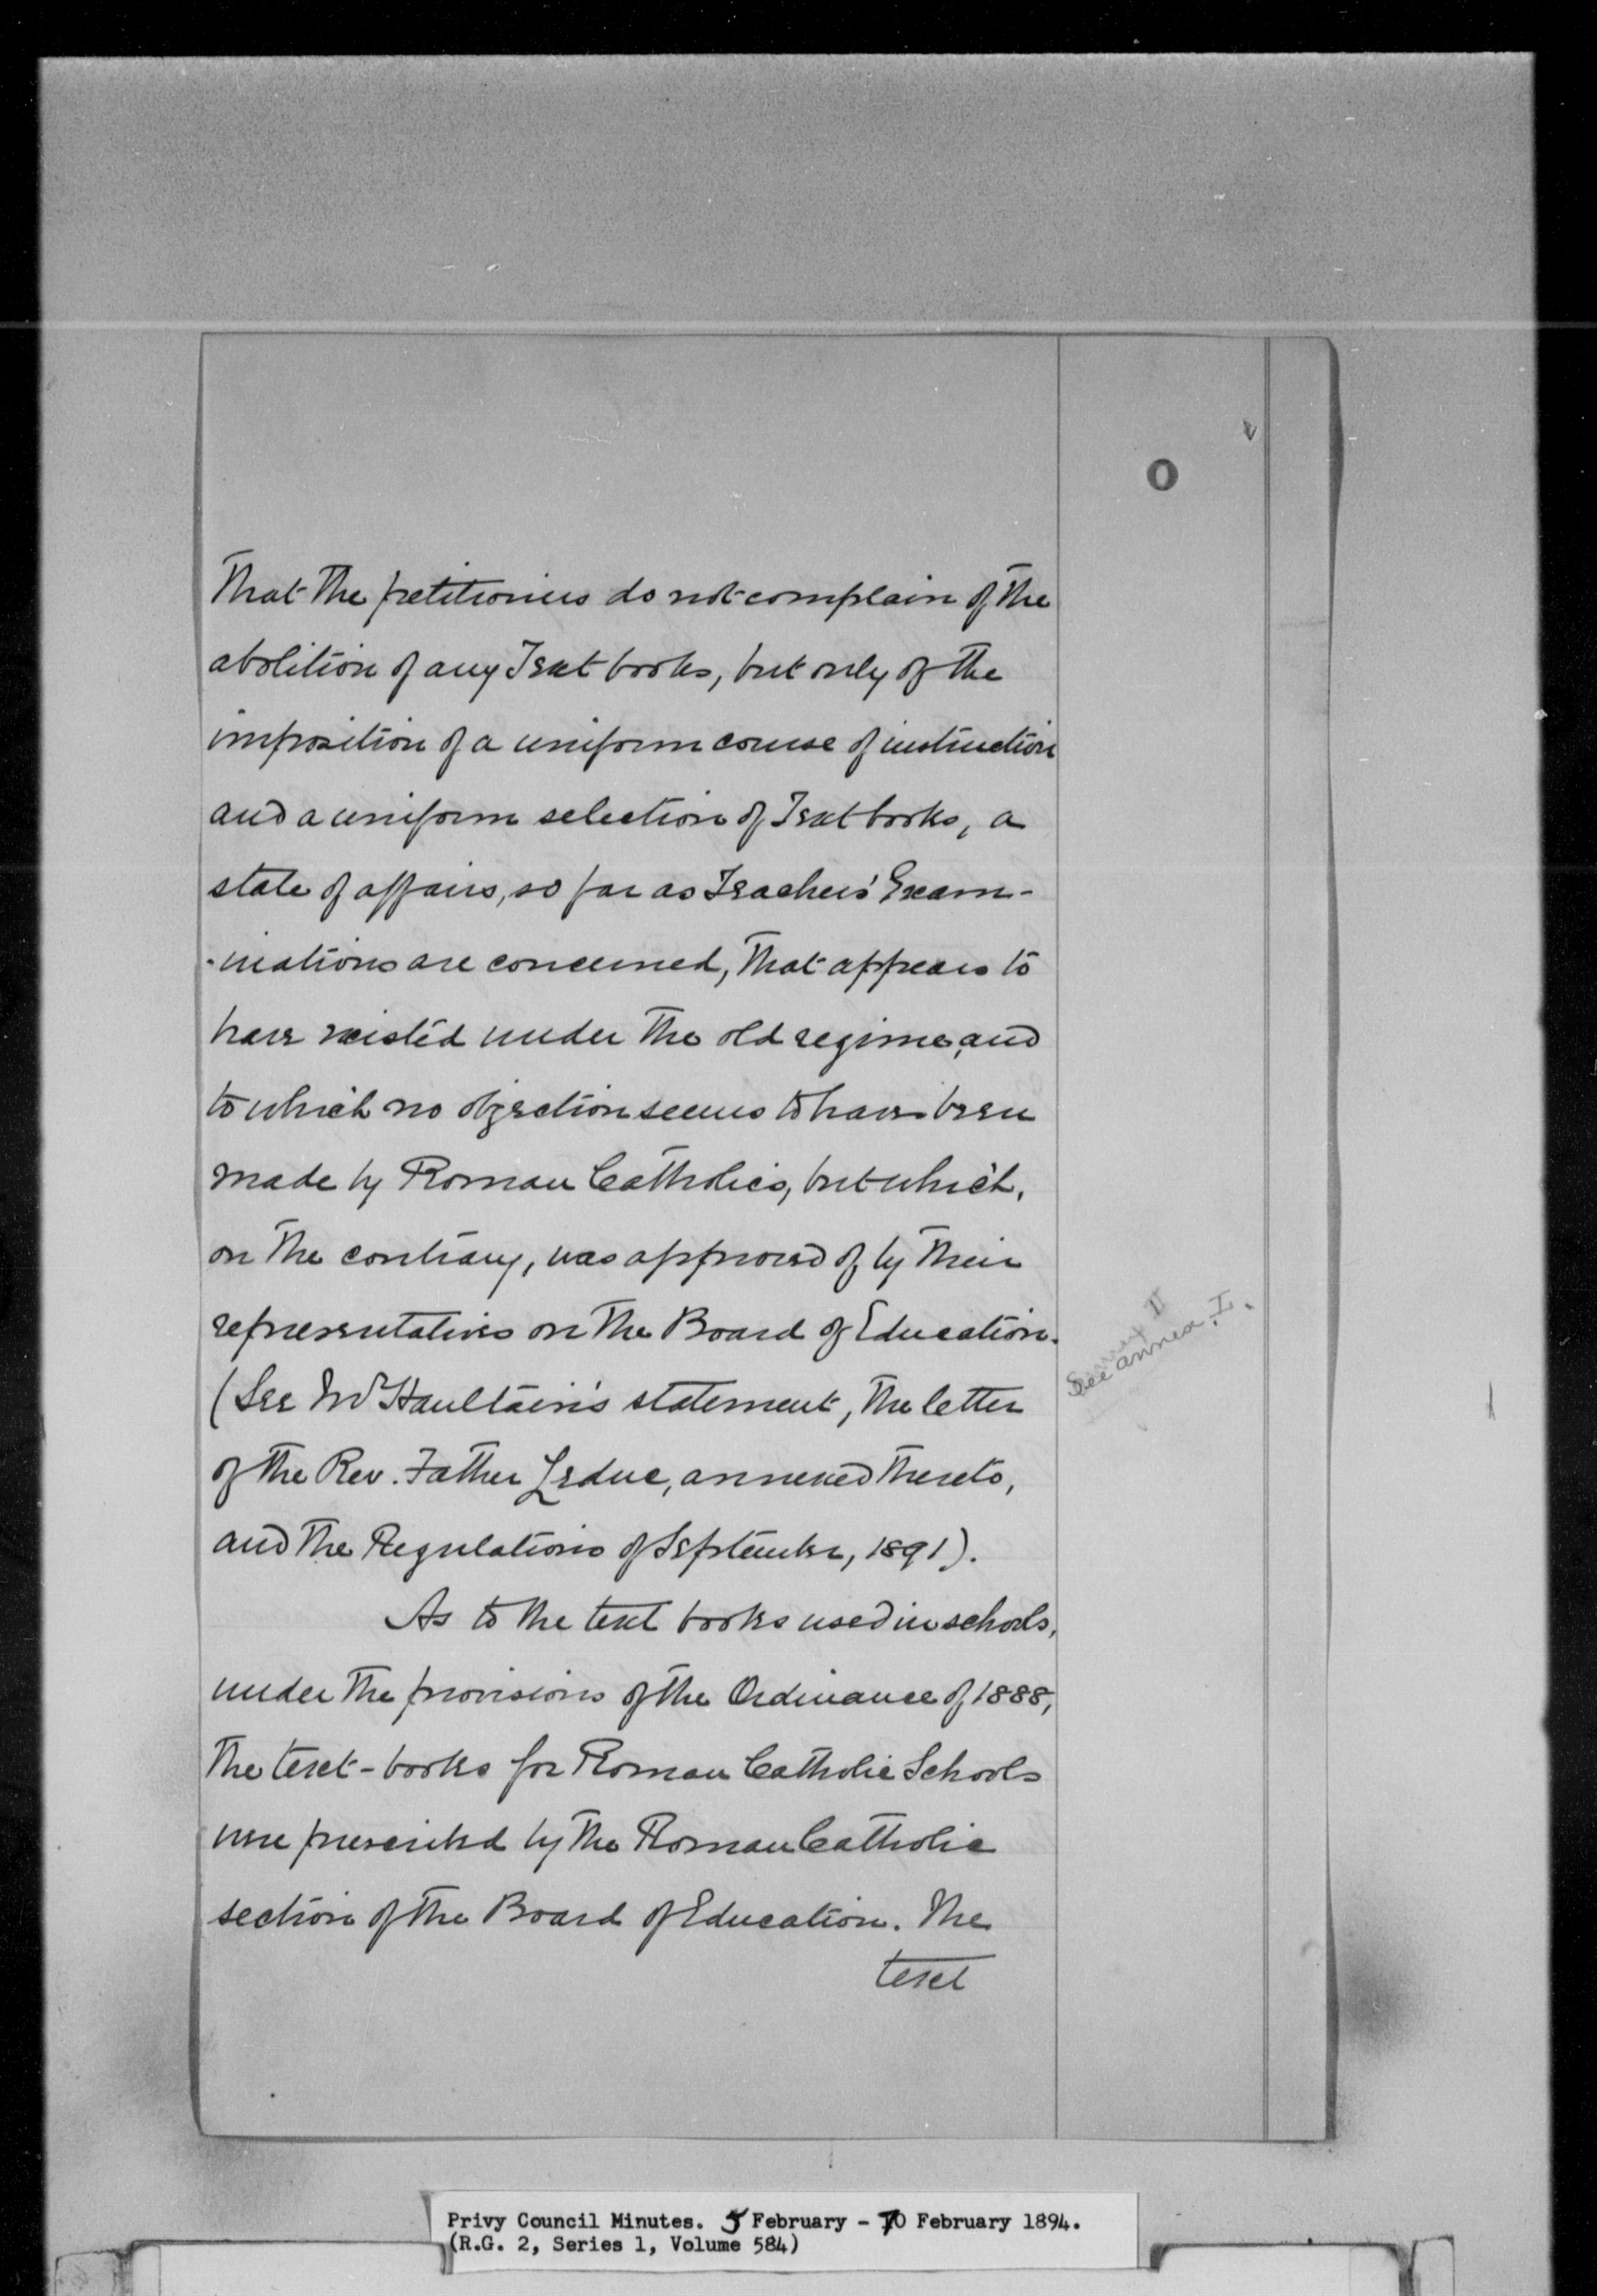 O
That the petitioners do not complain of the
abolition of any Text books, but only of the
imposition of a uniform course of instruction
and a uniform selection of Text books, a
state of affairs, so far as Teachers' Exam-
-inations are concerned, that appears to
have existed under the old regime, and
to which no objection seems to have been
made by Roman Catholics, but which,
on the contrary, was approved of by their
representatives on the Board of Education.
(See Mr Haultain's statement, the letter
of the Rev. Father Leduc, annexed thereto,
and the Regulations of September, 1891).
See annex. I.
As to the text books used in schools,
under the provisions of the Ordinance of 1888,
the text-books for Roman Catholic Schools
were prescribed by the Roman Catholic
section of the Board of Education. The
text
Privy Council Minutes. 5 February - 10 February 1894.
(R.G. 2, Series 1, Volume 584)